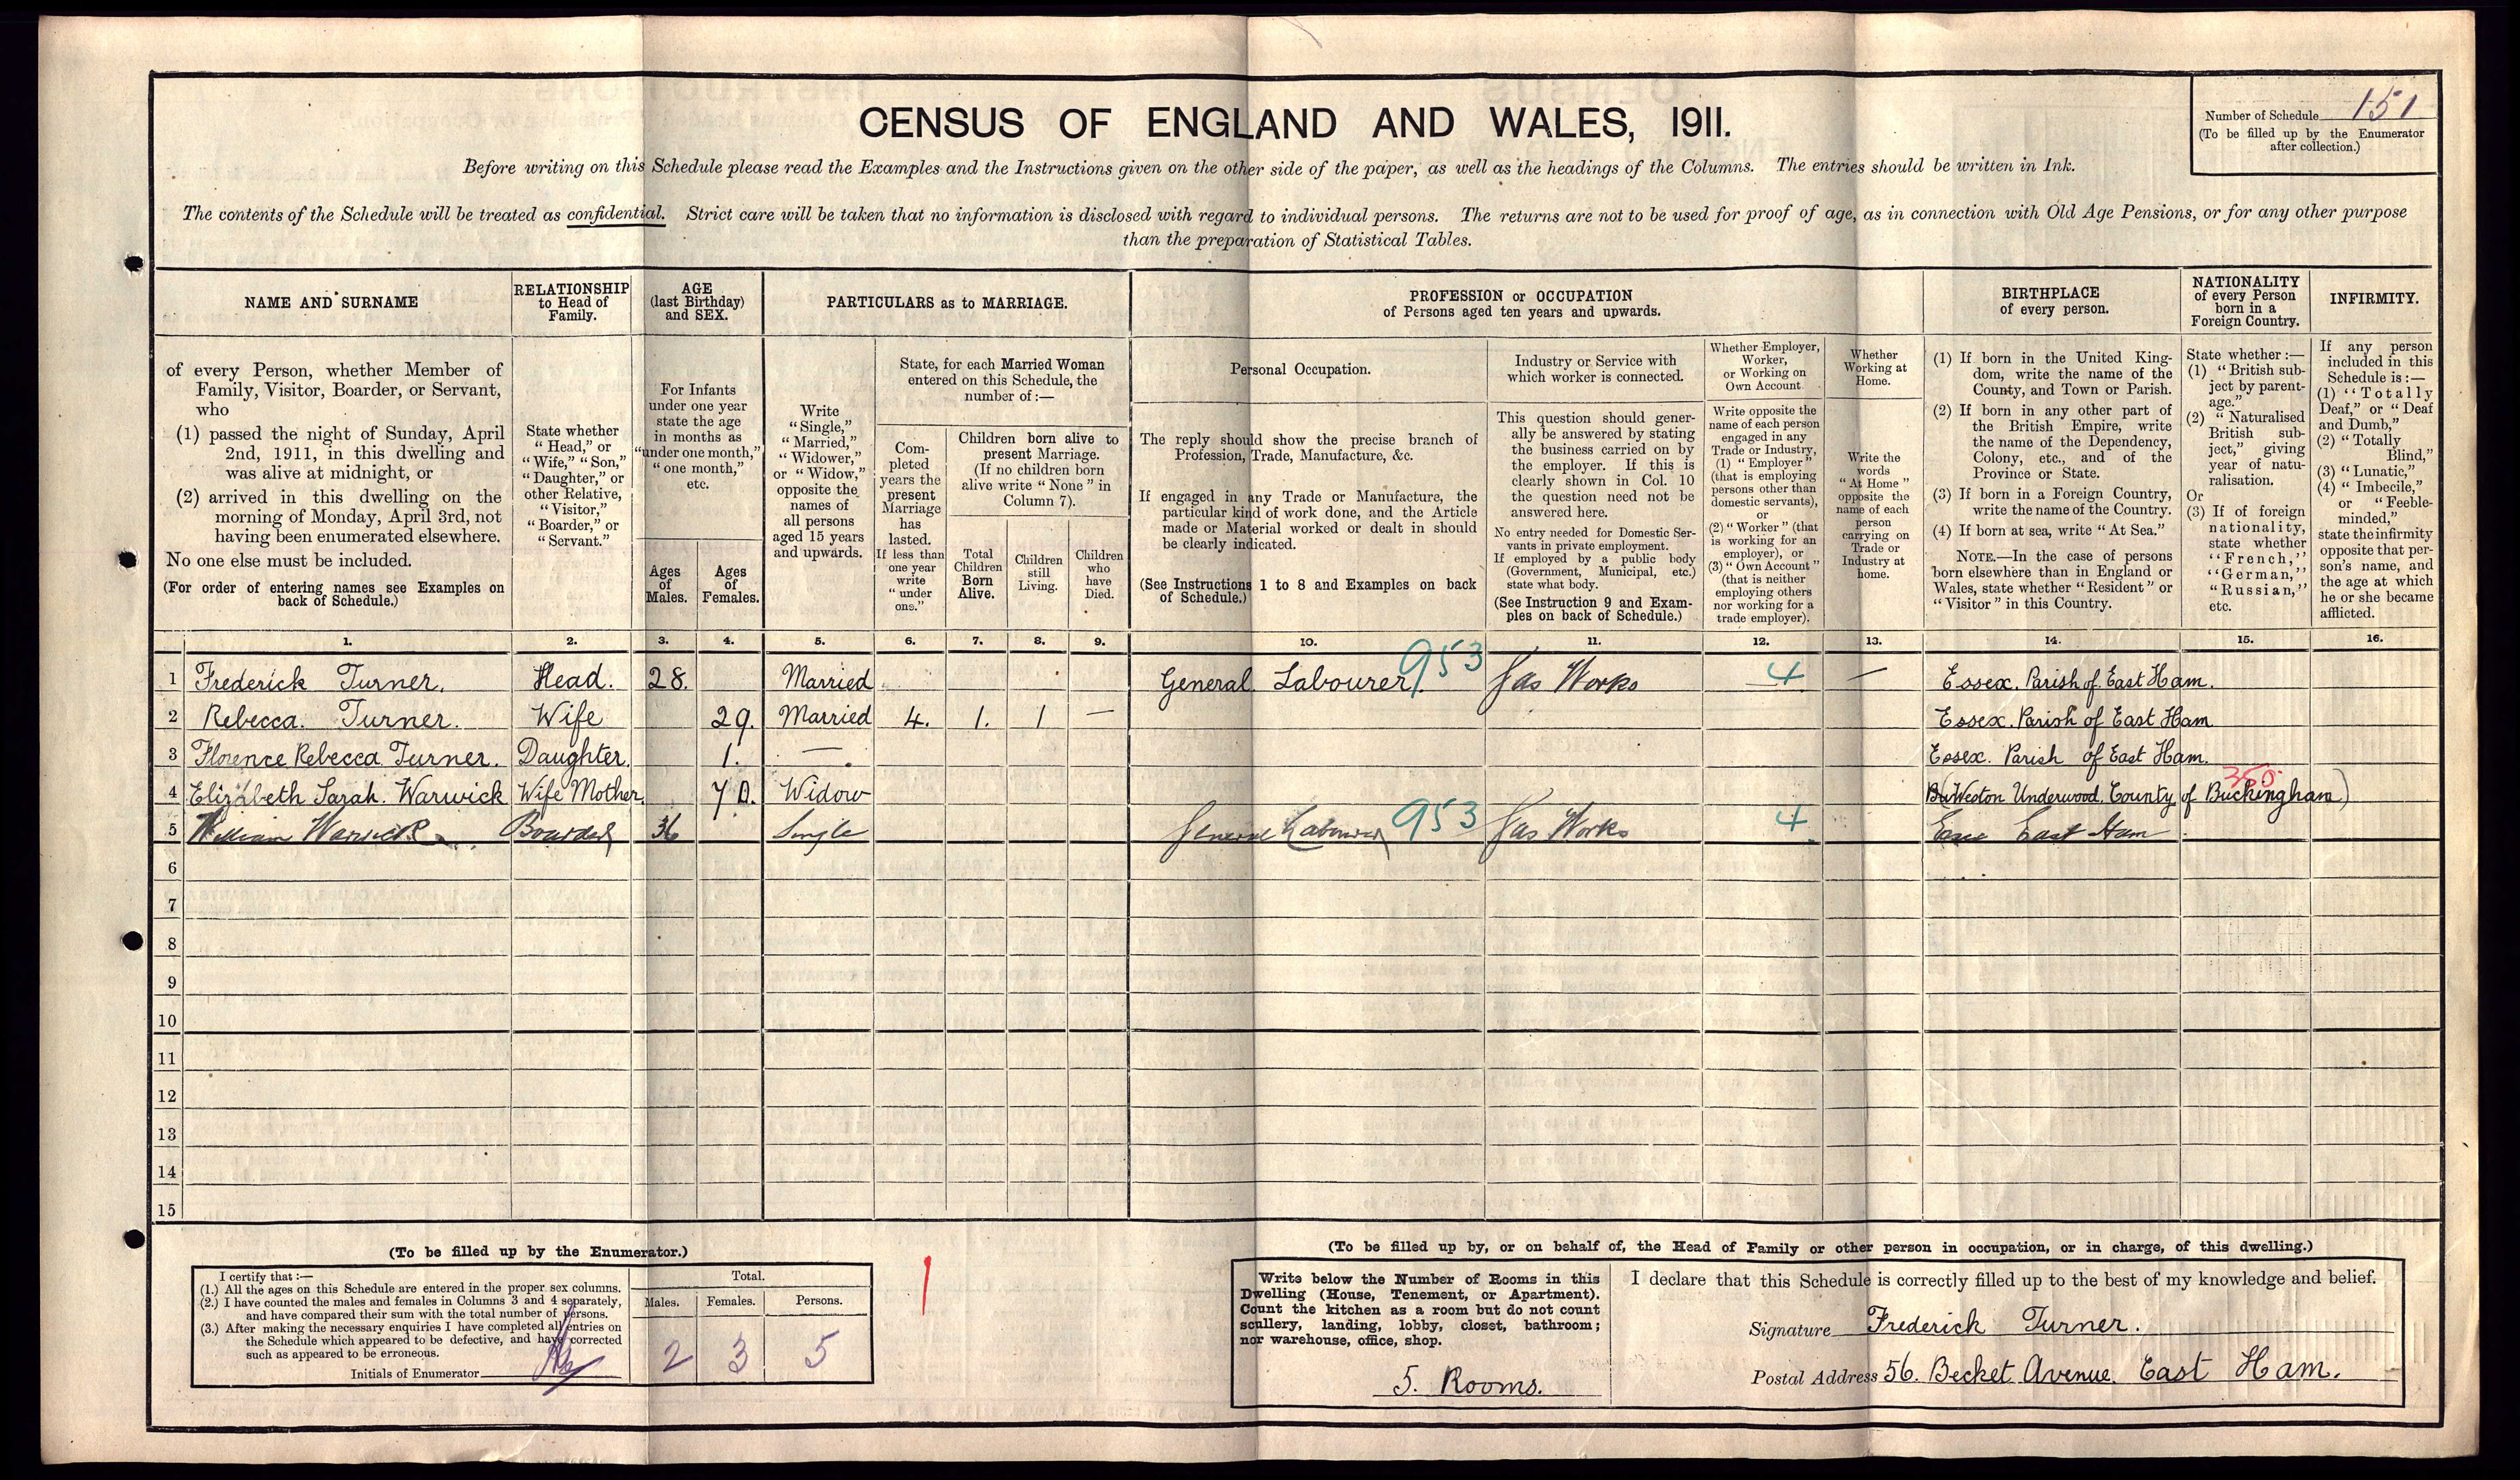 CENSUS OF ENGLAND AND WALES, 1911.
Number of Schedule 151
(To be filled up by the Enumerator
after collection.)
Before writing on this Schedule please read the Examples and the Instructions given on the other side of the paper, as well as the headings of the Columns. The entries should be written in Ink.
The contents of the Schedule will be treated as confidential. Strict care will be taken that no information is disclosed with regard to individual persons. The returns are not to be used for proof of age, as in connection with Old Age Pensions, or for any other purpose
than the preparation of Statistical Tables.
NAME AND SURNAME
RELATIONSHIP
to Head of
Family.
AGE
(last Birthday)
and SEX.
PARTICULARS as to MARRIAGE.
PROFESSION or OCCUPATION
of Persons aged ten years and upwards.
BIRTHPLACE
of every person.
NATIONALITY
of every Person
born in a
Foreign Country.
INFIRMITY.
of every Person, whether Member of
Family, Visitor, Boarder, or Servant,
who
(1) passed the night of Sunday, April
2nd, 1911, in this dwelling and
was alive at midnight, or
(2) arrived in this dwelling on the
morning of Monday, April 3rd, not
having been enumerated elsewhere.
No one else must be included.
(For order of entering names see Examples on
back of Schedule.)
State whether
"Head," or
"Wife," "Son,"
"Daughter," or
other Relative,
"Visitor,"
"Boarder," or
"Servant."
For Infants
under one year
state the age
in months as
"under one month,"
"one month,"
etc.
Ages
of
Males.
Ages
of
Females.
Write
"Single,"
"Married,"
"Widower,"
or "Widow,"
opposite the
names of
all persons
aged 15 years
and upwards.
State, for each Married Woman
entered on this Schedule, the
number of :—
Com-
pleted
years the
present
Marriage
has
lasted.
If less than
one year
write
"under
one."
Children born alive to
present Marriage.
(If no children born
alive write "None" in
Column 7).
Total
Children
Born
Alive.
Children
still
Living.
Children
who
have
Died.
Personal Occupation.
The reply should show the precise branch of
Profession, Trade, Manufacture, &c.
If engaged in any Trade or Manufacture, the
particular kind of work done, and the Article
made or Material worked or dealt in should
be clearly indicated.
(See Instructions 1 to 8 and Examples on back
of Schedule.)
Industry or Service with
which worker is connected.
This question should gener-
ally be answered by stating
the business carried on by
the employer. If this is
clearly shown in Col. 10
the question need not be
answered here.
No entry needed for Domestic Ser-
vants in private employment.
If employed by a public body
(Government, Municipal, etc.)
state what body.
(See Instruction 9 and Exam-
ples on back of Schedule.)
Whether Employer,
Worker,
or Working on
Own Account
Write opposite the
name of each person
engaged in any
Trade or Industry,
(1) "Employer"
(that is employing
persons other than
domestic servants),
or
(2) "Worker" (that
is working for an
employer), or
(3) "Own Account"
(that is neither
employing others
nor working for a
trade employer).
Whether
Working at
Home.
Write the
words
"At Home"
opposite the
name of each
person
carrying on
Trade or
Industry at
home.
(1) If born in the United King-
dom, write the name of the
County, and Town or Parish.
(2) If born in any other part of
the British Empire, write
the name of the Dependency,
Colony, etc., and of the
Province or State.
(3) If born in a Foreign Country,
write the name of the Country.
(4) If born at sea, write "At Sea."
NOTE.—In the case of persons
born elsewhere than in England or
Wales, state whether "Resident" or
"Visitor" in this Country.
State whether :—
(1) "British sub-
ject by parent-
age."
(2) "Naturalised
British sub-
ject," giving
year of natu-
ralisation.
Or
(3) If of foreign
nationality,
state whether
"French,"
"German,"
"Russian,"
etc.
If any person
included in this
Schedule is :—
(1) "Totally
Deaf," or "Deaf
and Dumb,"
(2) "Totally
Blind,"
(3) "Lunatic,"
(4) "Imbecile,"
or "Feeble-
minded,"
state the infirmity
opposite that per-
son's name, and
the age at which
he or she became
afflicted.
1. 2. 3. 4. 5. 6. 7. 8. 9. 10. 11. 12. 13. 14. 15. 16.
1 Frederick Turner. Head. 28. Married General Labourer. 953 Gas Works 4 — Essex. Parish of East Ham.
2 Rebecca. Turner. Wife 29. Married 4. 1. 1 — Essex. Parish of East Ham
3 Florence Rebecca Turner. Daughter. 1. — Essex. Parish of East Ham.
4 Elizabeth Sarah. Warwick Wife Mother. 70. Widow Weston Underwood. County of Buckingham) 350
5 William Warwick Boarder 36 Single General Labourer 953 Gas Works 4 Essex East Ham
6
7
8
9
10
11
12
13
14
15
(To be filled up by the Enumerator.)
I certify that :—
(1.) All the ages on this Schedule are entered in the proper sex columns.
(2.) I have counted the males and females in Columns 3 and 4 separately,
and have compared their sum with the total number of persons.
(3.) After making the necessary enquiries I have completed all entries on
the Schedule which appeared to be defective, and have corrected
such as appeared to be erroneous.
Initials of Enumerator
Total.
Males. Females. Persons.
2 3 5
(To be filled up by, or on behalf of, the Head of Family or other person in occupation, or in charge, of this dwelling.)
Write below the Number of Rooms in this
Dwelling (House, Tenement, or Apartment).
Count the kitchen as a room but do not count
scullery, landing, lobby, closet, bathroom;
nor warehouse, office, shop.
5. Rooms.
I declare that this Schedule is correctly filled up to the best of my knowledge and belief.
Signature Frederick Turner.
Postal Address 56. Becket Avenue. East Ham.